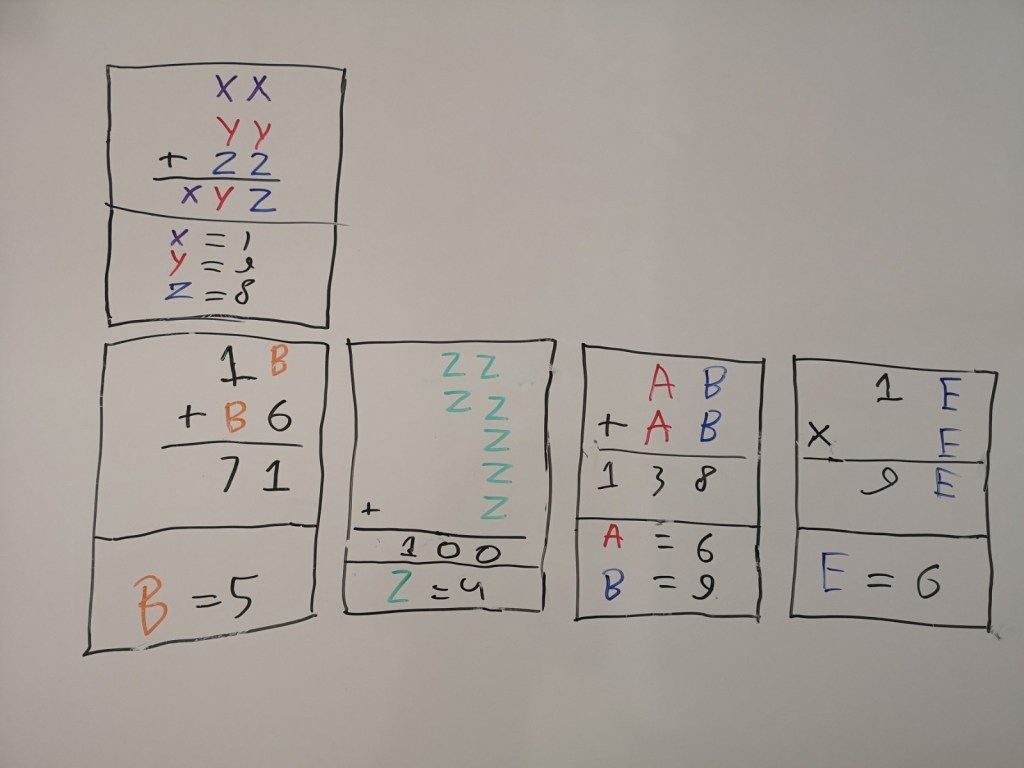 X X
Y Y
+ Z Z
X Y Z
X = 1
Y = 9
Z = 8
1 B
+ B 6
7 1
B = 5
Z Z
Z Z
Z
Z
+ Z
1 0 0
Z = 4
A B
+ A B
1 3 8
A = 6
B = 9
1 E
X E
9 E
E = 6